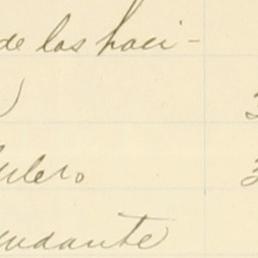 de las haci-
)
ulero
udante